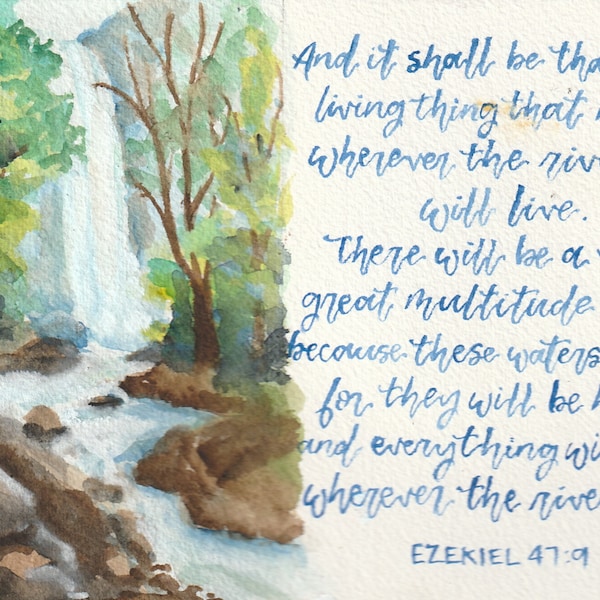 And it shall be tha
living thing that
wherever the rive
will live.
There will be a v
great multitude
because these waters
for they will be h
and everything wi
wherever the rive
EZEKIEL 47:9